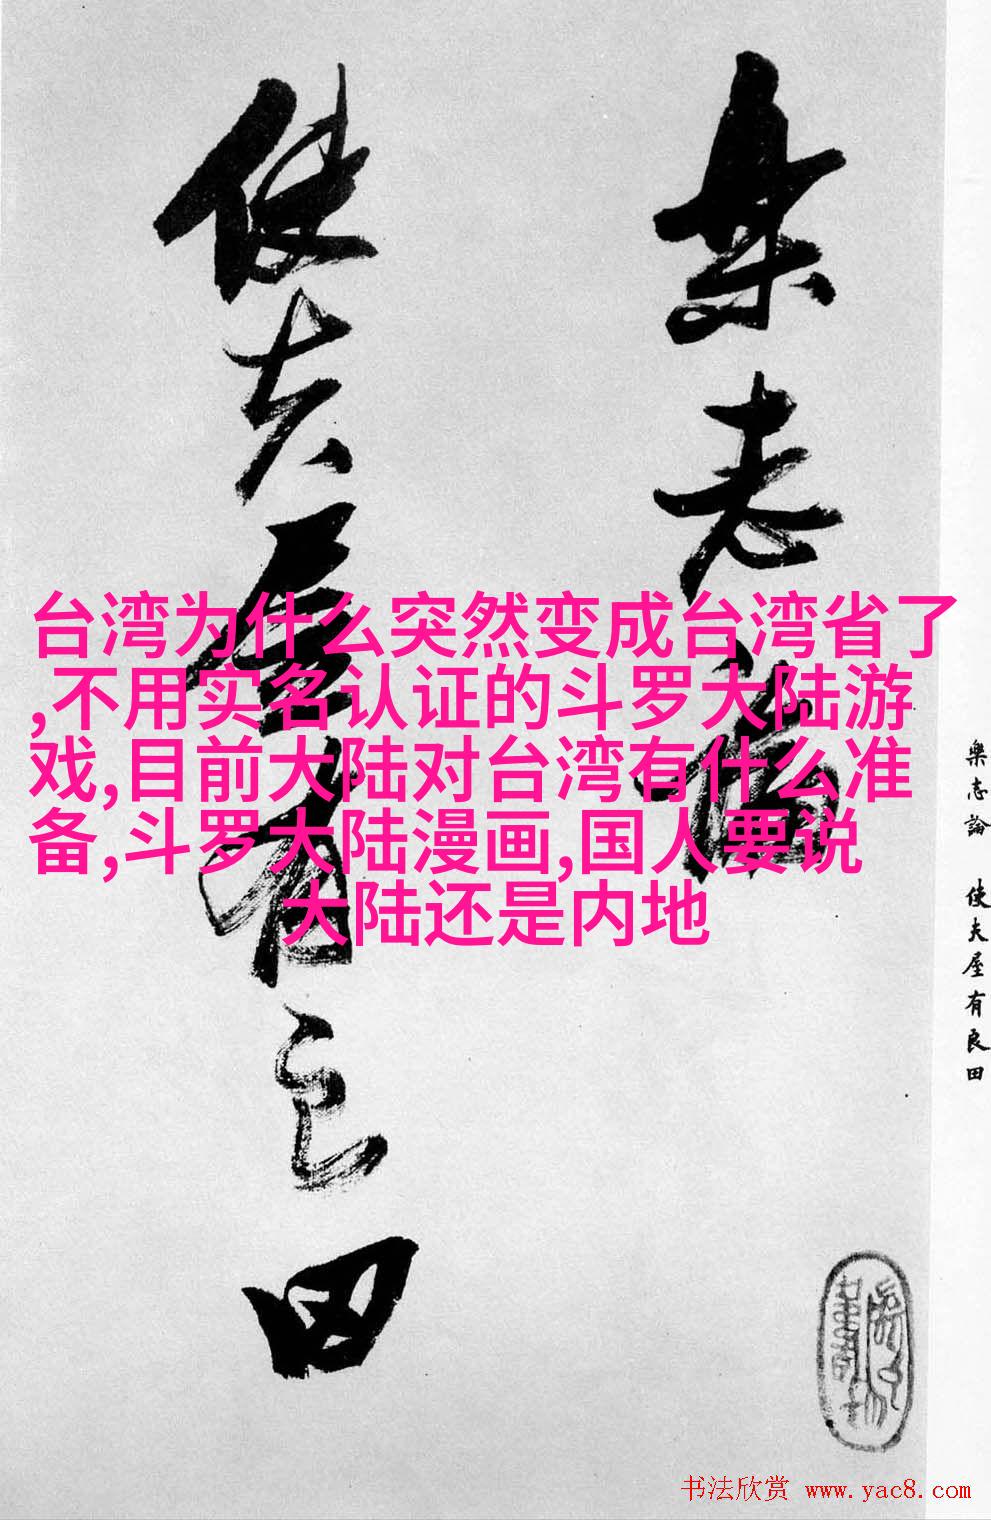 樂志論
使夫屋有良田
台湾为什么突然变成台湾省了
,不用实名认证的斗罗大陆游
戏,目前大陆对台湾有什么准
备,斗罗大陆漫画,国人要说
大陆还是内地
樂志論 使夫屋有良田
书法欣赏 www.yac8.com